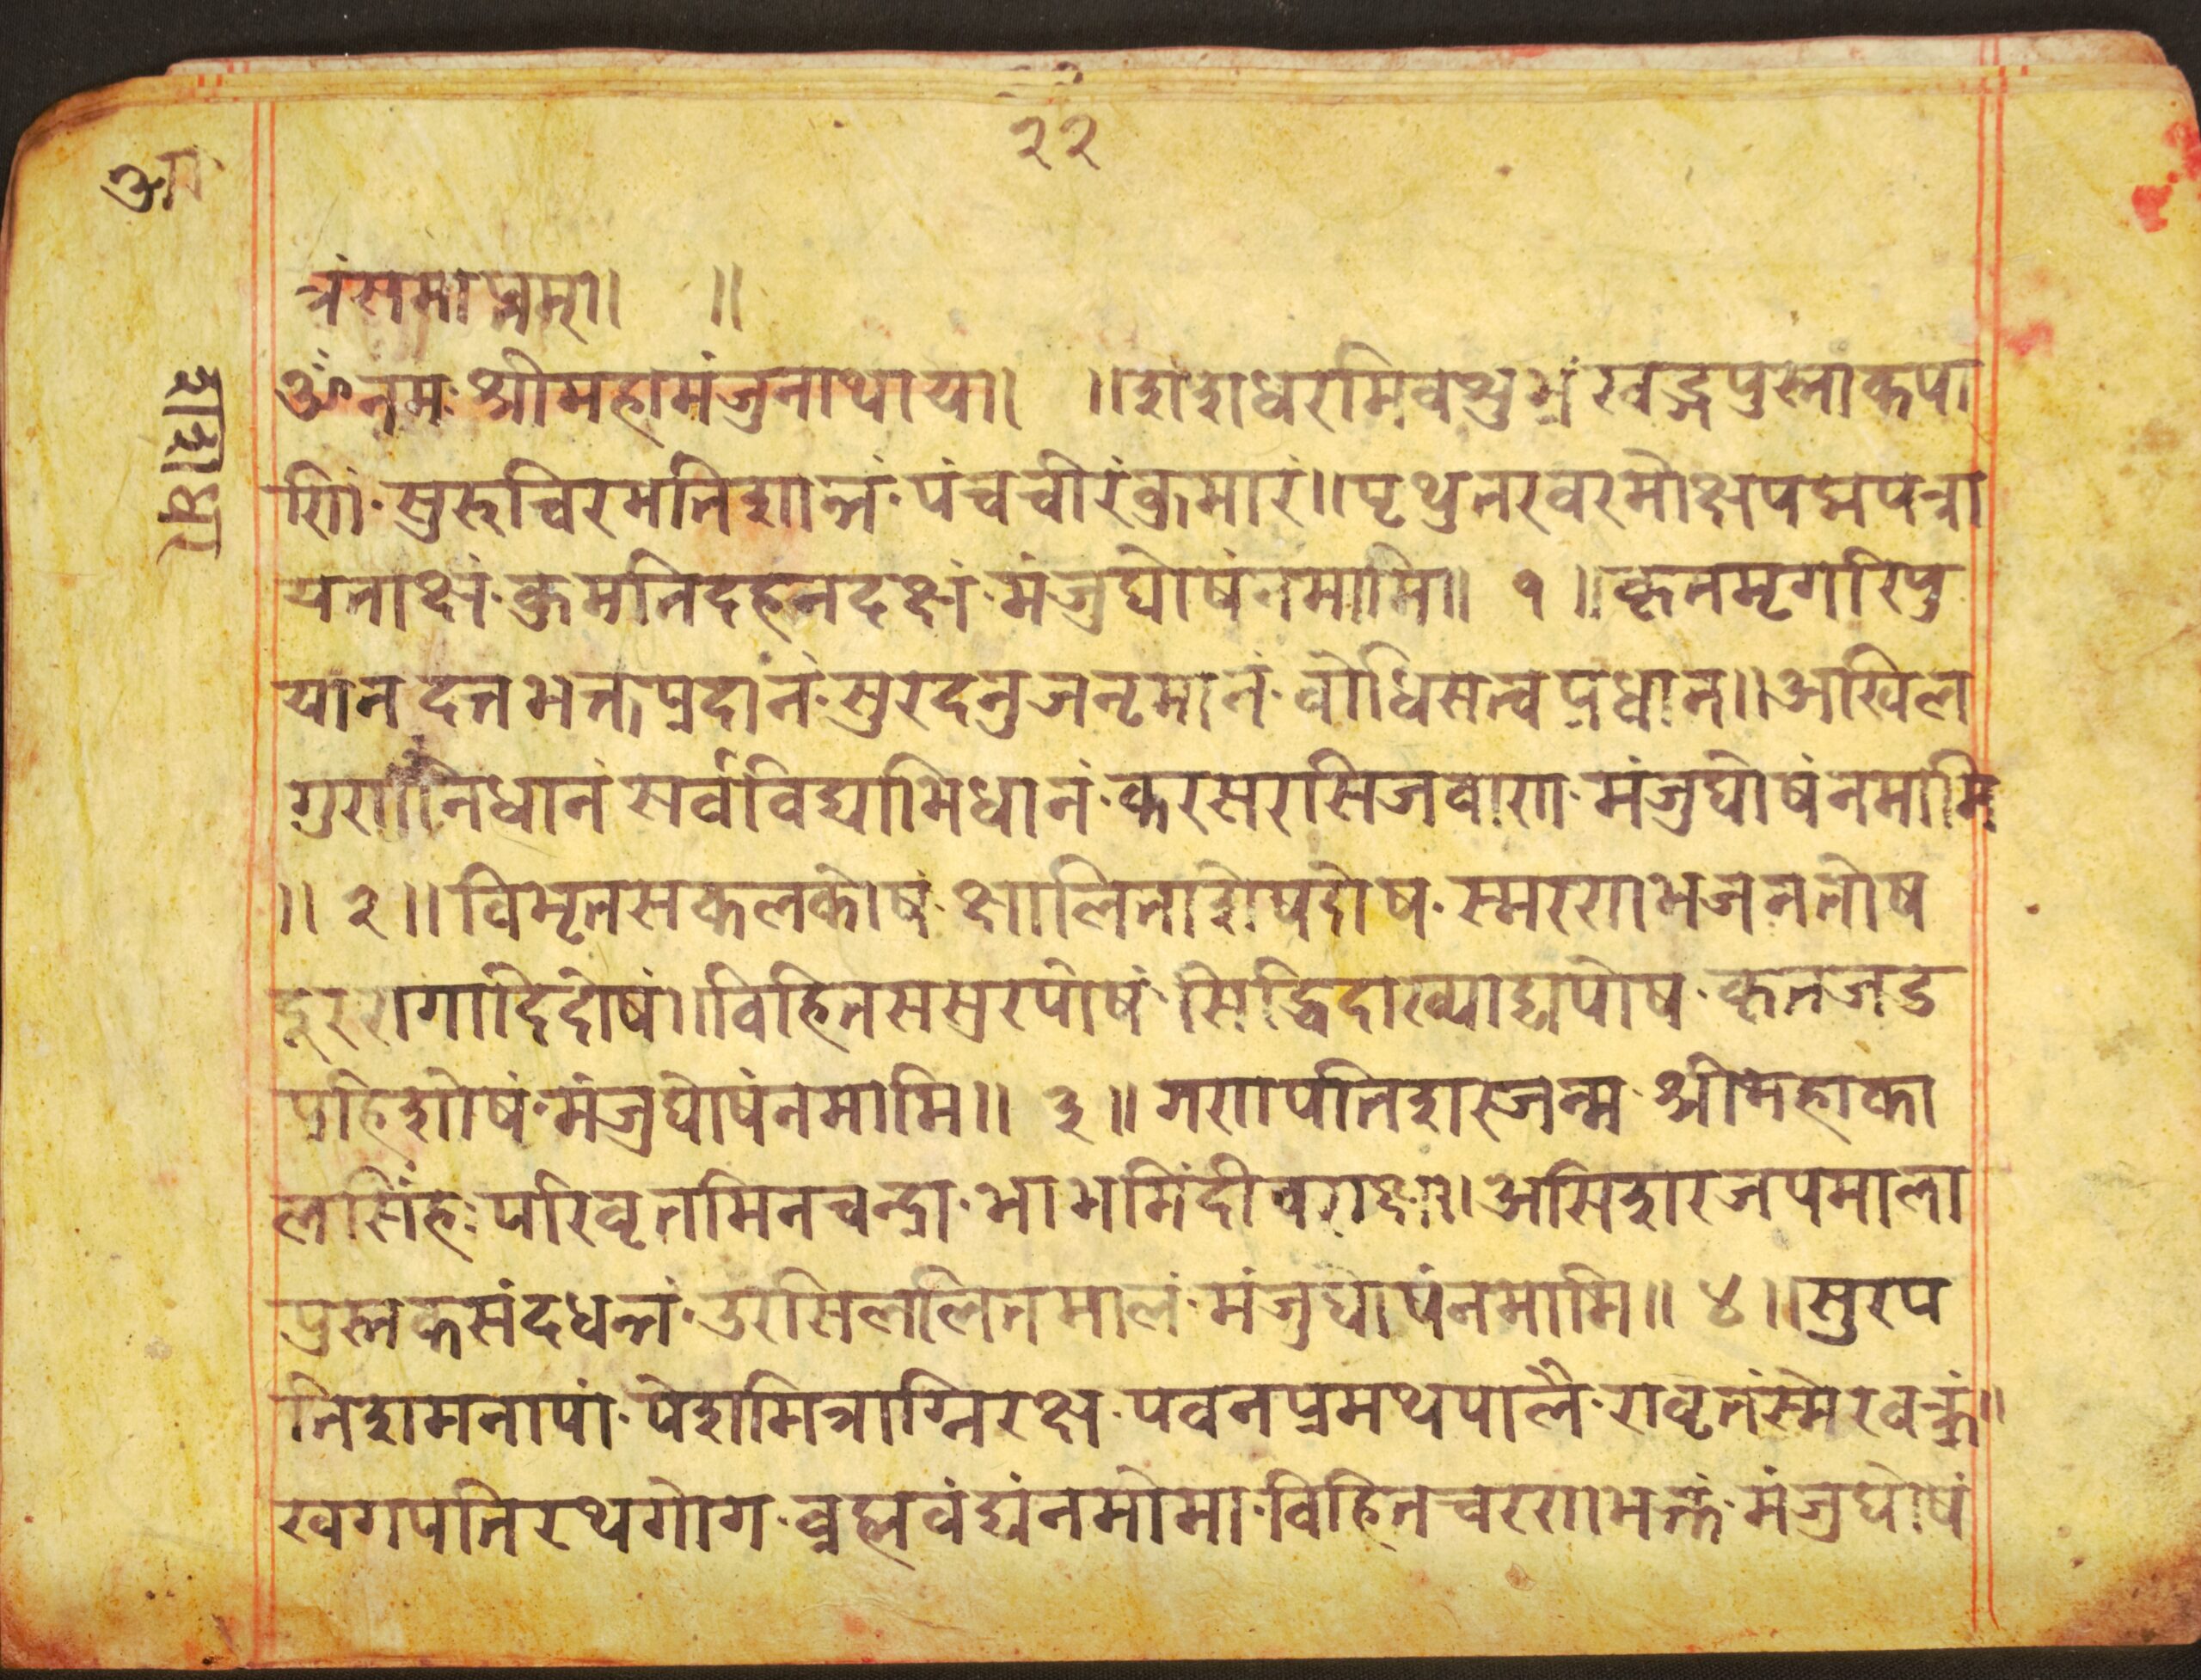 २२
त्रंसमाप्तम्॥ ॥
ॐनमः श्रीमहामंजुनाथाय॥ ॥शशधरमिवशुभ्रं खड्गपुस्ताकपा
णिं· सुरुचिरमतिशान्तं· पंचचीरंकुमारं॥पृथुतरवरमोक्षपद्मपत्रा
यताक्षं· कुमतिदहनदक्षं· मंजुघोषंनमामि॥ १ ॥कृतमृगरिपु
यान दत्तभक्तप्रदानं· सुरदनुजनृमानं· वोधिसत्वप्रधान॥अखिल
गुणनिधानं सर्वविद्याभिधानं· करसरसिजवाण· मंजुघोषंनमामि
॥ २ ॥विभृतसकलकोषं· क्षालिताशेषदोष· स्मरणभजनतोष
दूररागादिदोषं॥विहितससुरपोषं· सिद्धिदाख्याद्यपोष· कृतजड
प्रहिशोषं· मंजुघोषंनमामि॥ ३ ॥ गणपतिशरजन्म· श्रीमहाका
लसिंहः परिवृतमिनचन्द्रा· भाभमिंदीवराक्ष॥असिशरजपमाला
पुस्तकसंदधन्तं· उरसिललितमालं· मंजुघोषंनमामि॥ ४ ॥सुरप
तिशमनापां· पेशमित्राग्निरक्ष· पवनप्रमथपालै· रावृतंस्मेरवक्त्रं॥
खगपतिरथगोग· ब्रह्मवंद्यंनमोमा· विहितचरणभक्तं· मंजुघोषं
शशधर